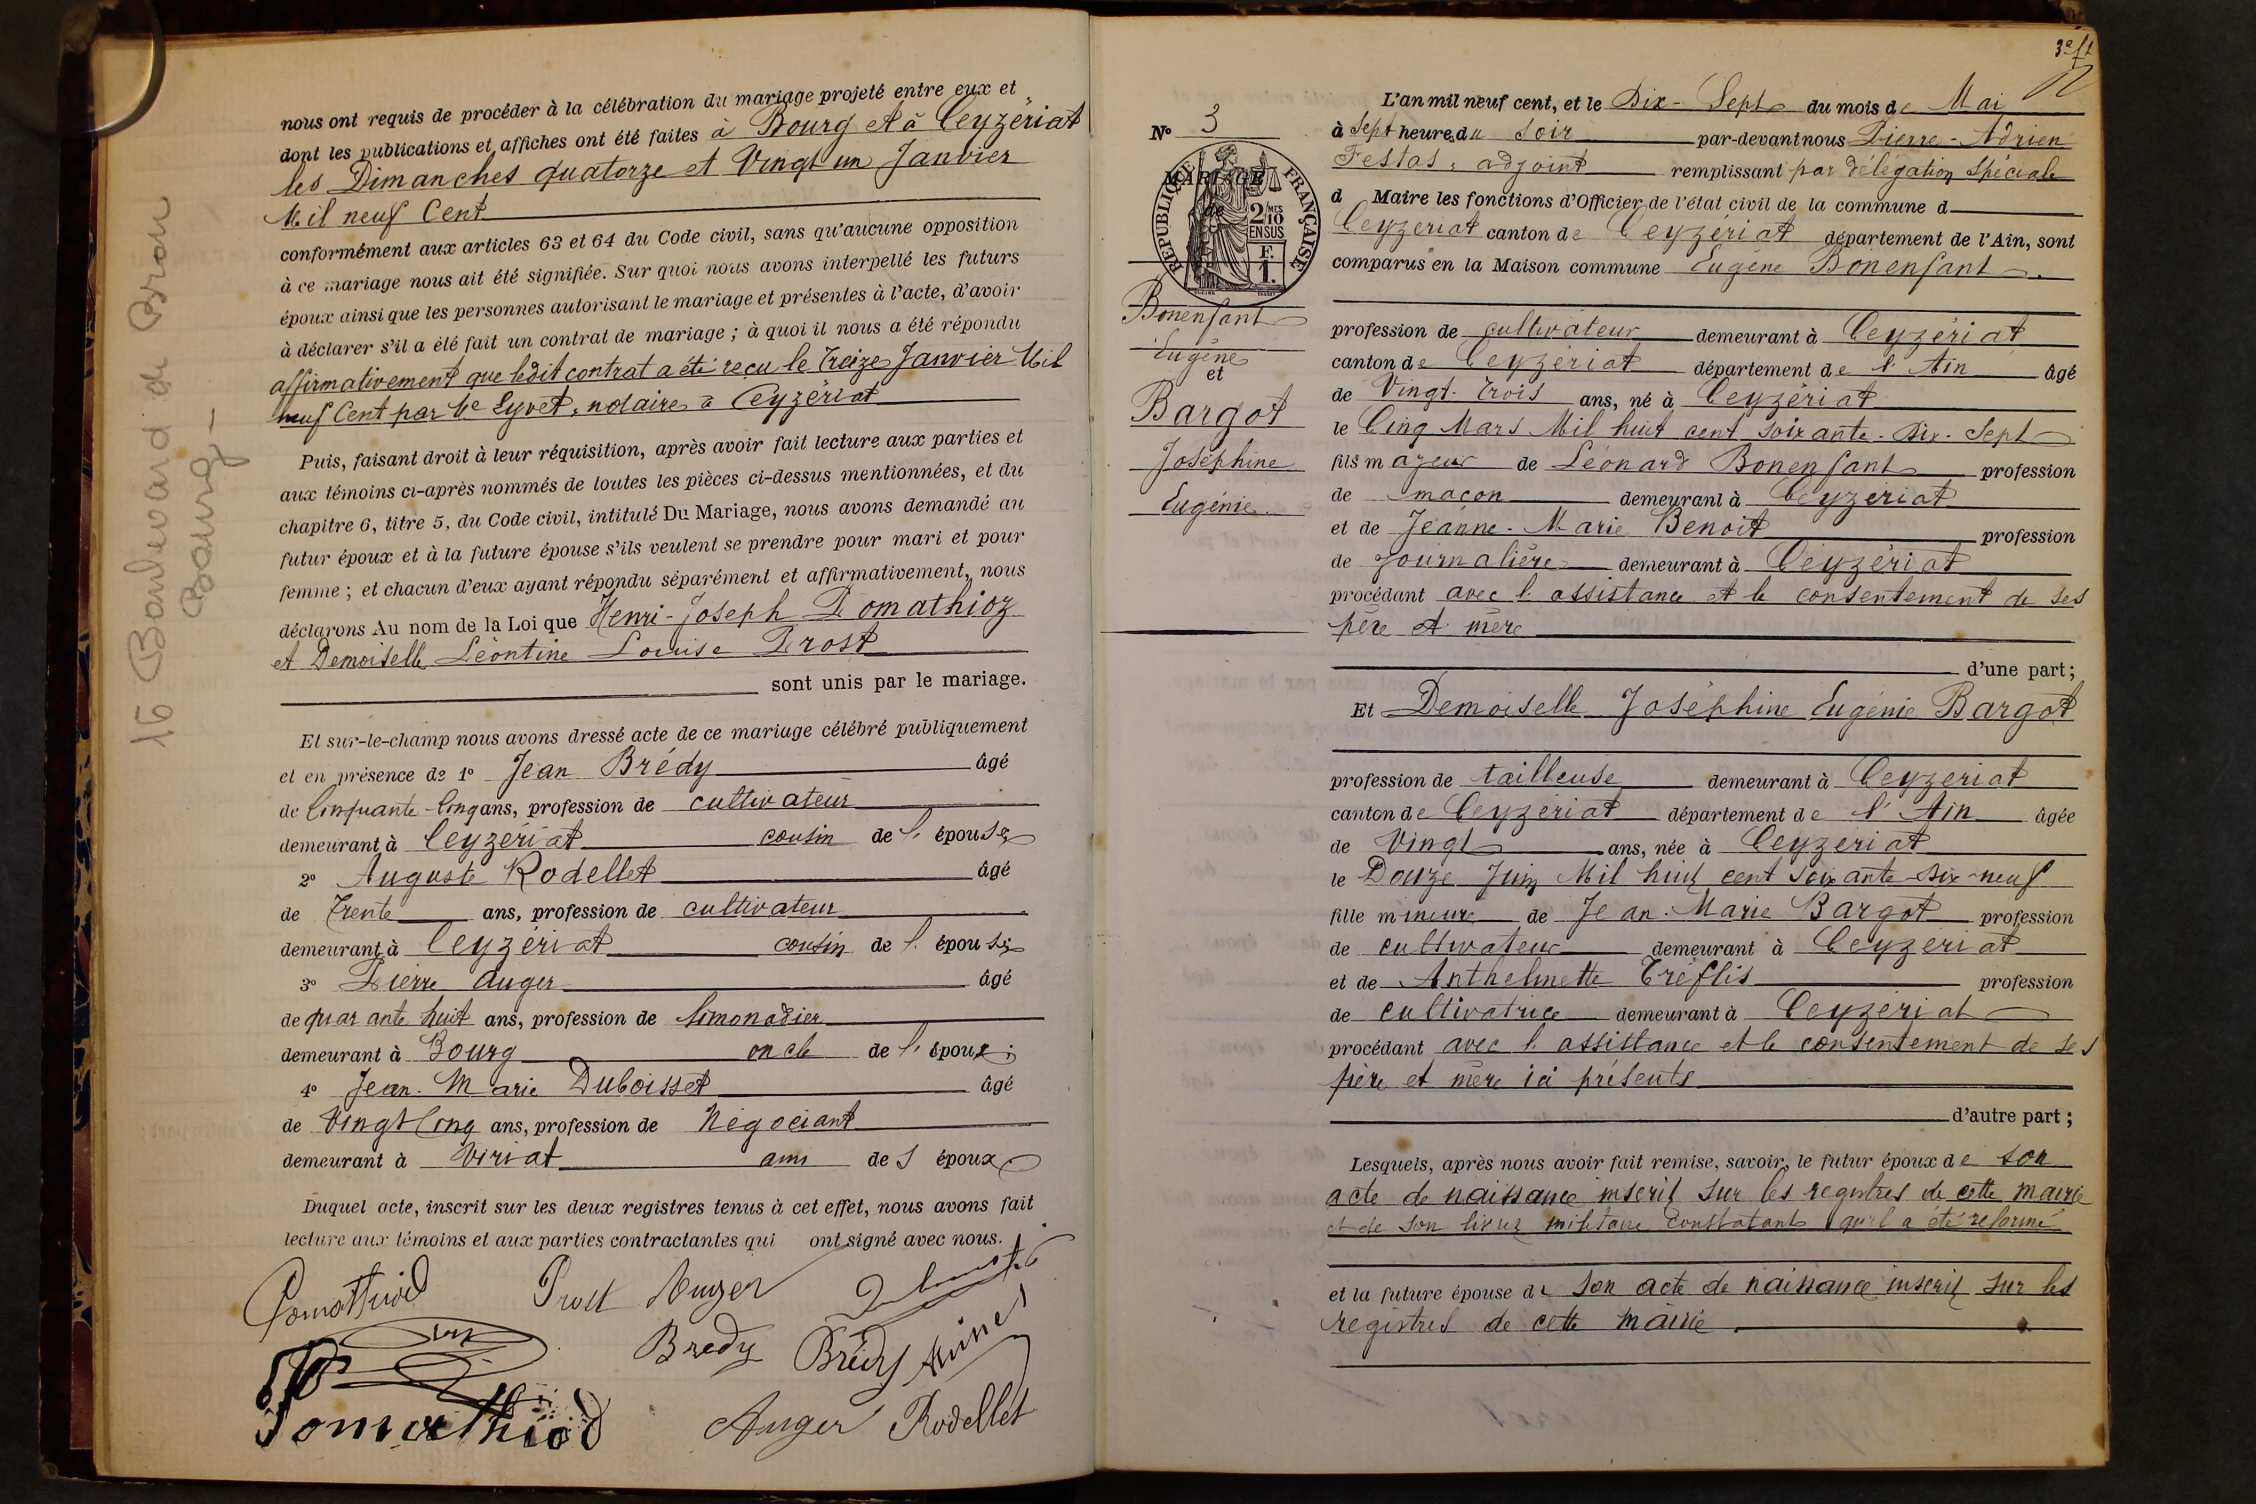 nous ont requis de procéder à la célébration du mariage projeté entre eux et
dont les publications et affiches ont été faites à Bourg et à Ceyzériat
les Dimanches quatorze et Vingt un Janvier
Mil neuf Cent
conformément aux articles 63 et 64 du Code civil, sans qu'aucune opposition
à ce mariage nous ait été signifiée. Sur quoi nous avons interpellé les futurs
époux ainsi que les personnes autorisant le mariage et présentes à l'acte, d'avoir
à déclarer s'il a été fait un contrat de mariage ; à quoi il nous a été répondu
affirmativement que ledit contrat a été reçu le Treize Janvier Mil
neuf Cent par Me Eyvet, notaire à Ceyzériat
Puis, faisant droit à leur réquisition, après avoir fait lecture aux parties et
aux témoins ci-après nommés de toutes les pièces ci-dessus mentionnées, et du
chapitre 6, titre 5, du Code civil, intitulé Du Mariage, nous avons demandé au
futur époux et à la future épouse s'ils veulent se prendre pour mari et pour
femme ; et chacun d'eux ayant répondu séparément et affirmativement, nous
déclarons Au nom de la Loi que Henri-Joseph Pomathioz
et Demoiselle Léontine Louise Prost
sont unis par le mariage.
Et sur-le-champ nous avons dressé acte de ce mariage célébré publiquement
et en présence de 1º Jean Brédy âgé
de Cinquante-Cinq ans, profession de cultivateur
demeurant à Ceyzériat cousin de l' épouse
2º Auguste Rodellet âgé
de Trente ans, profession de cultivateur
demeurant à Ceyzériat cousin de l' épouse
3º Pierre Auger âgé
de quarante huit ans, profession de limonadier
demeurant à Bourg oncle de l' époux ;
4º Jean-Marie Duboisset âgé
de Vingt Cinq ans, profession de Négociant
demeurant à Viriat ami des époux
Duquel acte, inscrit sur les deux registres tenus à cet effet, nous avons fait
lecture aux témoins et aux parties contractantes qui ont signé avec nous.
Pomathiod Prost Auger
Bredy Brédy Aimé
Pomathiod Auger Rodellet
16 Boulevard de Brou
Bourg -
Nº 3
MARIAGE
de
RÉPUBLIQUE FRANÇAISE
2/10 MES
EN SUS
F.
1.
Bonenfant
Eugène
et
Bargot
Joséphine
Eugénie
3e ft
L'an mil neuf cent, et le Dix-Sept du mois de Mai
à Sept heures du soir par-devant nous Pierre-Adrien
Festas, adjoint remplissant par délégation Spéciale
d Maire les fonctions d'Officier de l'état civil de la commune d
Ceyzériat canton de Ceyzériat département de l'Ain, sont
comparus en la Maison commune Eugène Bonenfant
profession de cultivateur demeurant à Ceyzériat
canton de Ceyzériat département de l'Ain âgé
de Vingt-Trois ans, né à Ceyzériat
le Cinq Mars Mil huit cent soixante-dix-sept
fils majeur de Léonard Bonenfant profession
de maçon demeurant à Ceyzériat
et de Jeanne-Marie Benoit profession
de Journalière demeurant à Ceyzériat
procédant avec l'assistance et le consentement de ses
père et mère
d'une part ;
Et Demoiselle Joséphine Eugénie Bargot
profession de tailleuse demeurant à Ceyzériat
canton de Ceyzériat département de l'Ain âgée
de Vingt ans, née à Ceyzériat
le Douze Juin Mil huit cent soixante-dix-neuf
fille mineure de Jean-Marie Bargot profession
de cultivateur demeurant à Ceyzériat
et de Anthelmette Tréflis profession
de cultivatrice demeurant à Ceyzériat
procédant avec l'assistance et le consentement de ses
père et mère ici présents
d'autre part ;
Lesquels, après nous avoir fait remise, savoir, le futur époux de son
acte de naissance inscrit sur les registres de cette mairie
et de son livret militaire constatant qu'il a été réformé
et la future épouse de son acte de naissance inscrit sur les
registres de cette mairie.